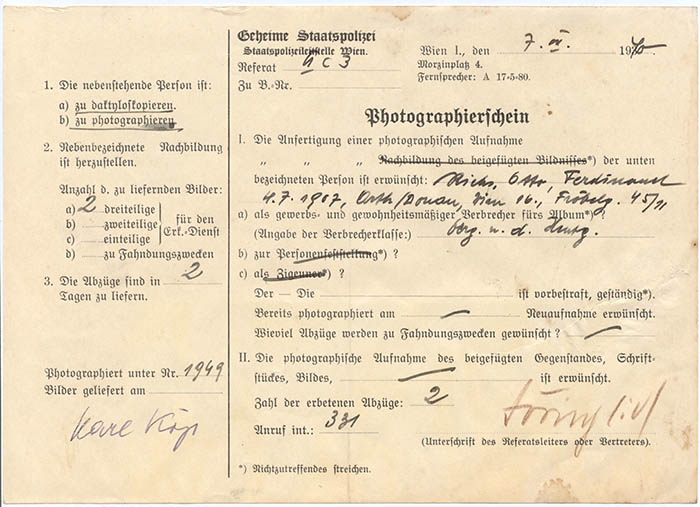 Geheime Staatspolizei
Staatspolizeileitstelle Wien.
Referat II C 3
Zu B.-Nr.
Wien I., den 7. VI. 1940
Morzinplatz 4.
Fernsprecher: A 17-5-80.
1. Die nebenstehende Person ist:
a) zu daktyloskopieren.
b) zu photographieren.
2. Nebenbezeichnete Nachbildung
ist herzustellen.
Anzahl d. zu liefernden Bilder:
a) 2 dreiteilige
b) zweiteilige
c) einteilige
für den
Erk.-Dienst
d) zu Fahndungszwecken
3. Die Abzüge sind in 2
Tagen zu liefern.
Photographiert unter Nr. 1949
Bilder geliefert am
Photographierschein
I. Die Anfertigung einer photographischen Aufnahme
„ „ „ Nachbildung des beigefügten Bildnisses*) der unten
bezeichneten Person ist erwünscht: Otto, Ferdinand
4.7.1907, Orth/Donau, Wien 16., 45/11
a) als gewerbs- und gewohnheitsmäßiger Verbrecher fürs Album*) ?
(Angabe der Verbrecherklasse:)
b) zur Personenfeststellung*) ?
c) als Zigeuner*) ?
Der — Die ist vorbestraft, geständig*).
Bereits photographiert am — Neuaufnahme erwünscht.
Wieviel Abzüge werden zu Fahndungszwecken gewünscht ? —
II. Die photographische Aufnahme des beigefügten Gegenstandes, Schrift-
stückes, Bildes, — ist erwünscht.
Zahl der erbetenen Abzüge: 2
Anruf int.: 331
(Unterschrift des Referatsleiters oder Vertreters).
*) Nichtzutreffendes streichen.